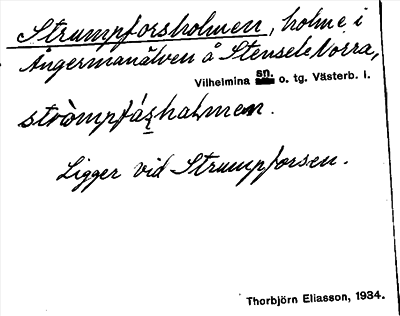 Strumpforsholmen, holme i
Ångermanälven å Stensele Norra,
Vilhelmina sn. o. tg. Västerb. l.
Ligger vid Strumpforsen.
Thorbjörn Eliasson, 1934.